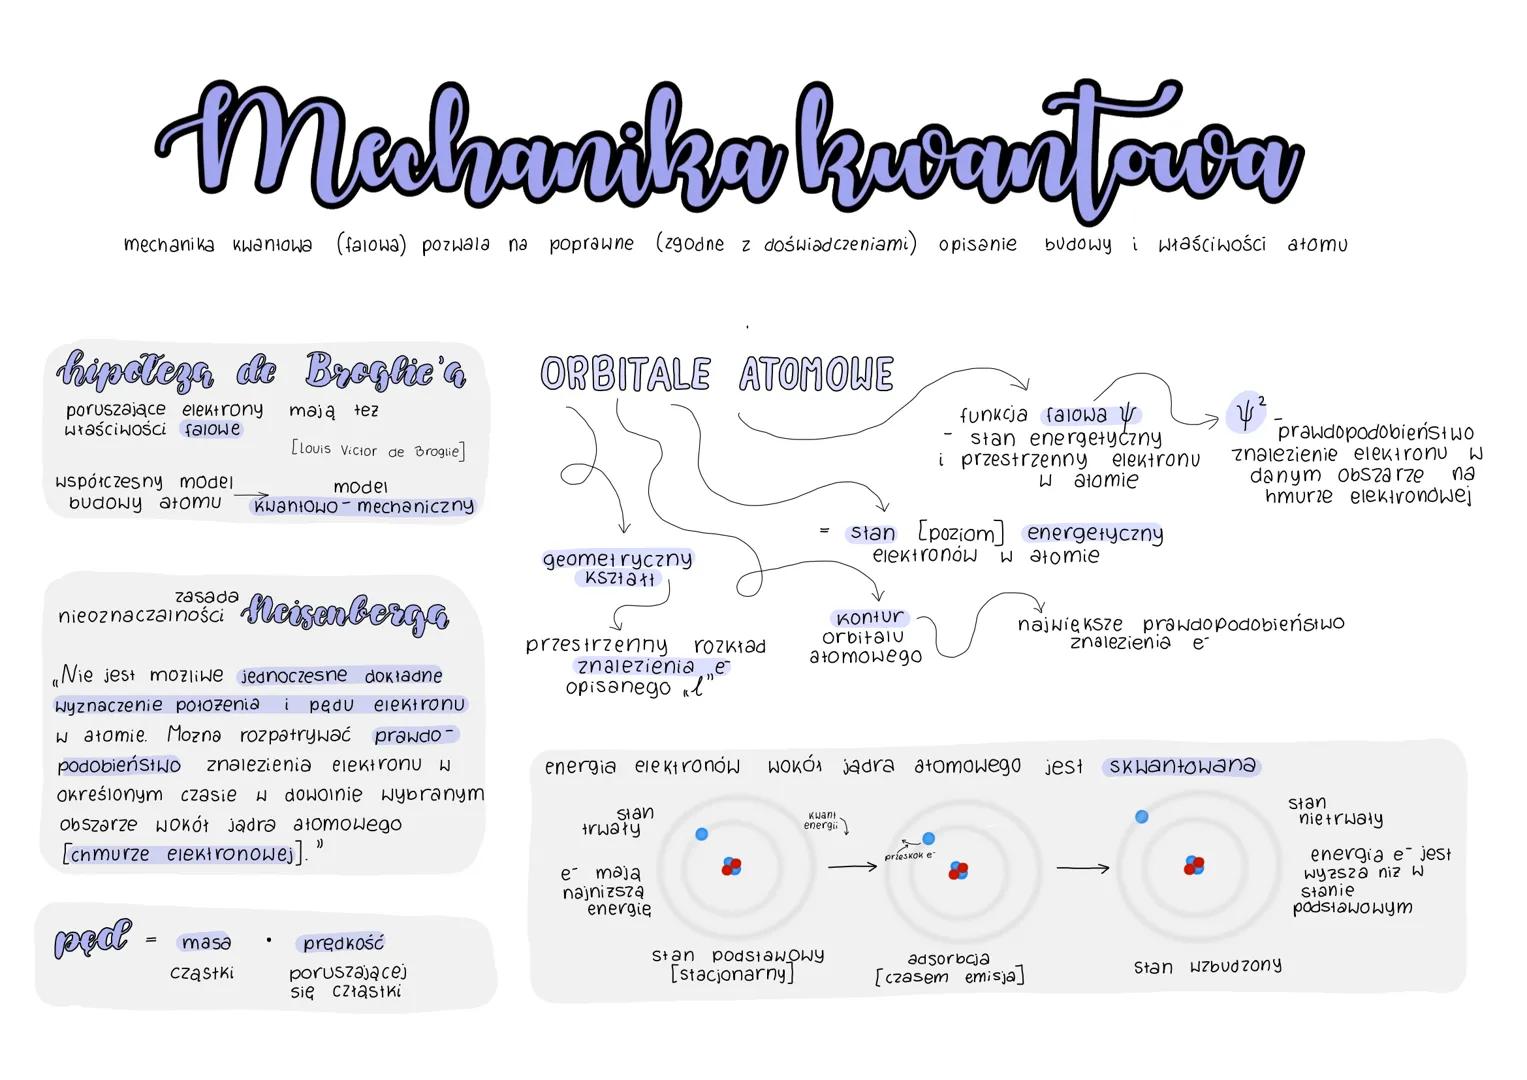 Mechanika kwantowa
mechanika kwantowa (falowa) pozwala na poprawne (zgodne z doświadczeniami) opisanie budowy i właściwości atomu
hipoteza de Broglie'a
poruszające elektrony mają też
właściwości falowe
[Louis Victor de Broglie]
współczesny model
budowy atomu
model
kwantowo-mechaniczny
zasada
nieoznaczalności Heisenberga
„Nie jest możliwe jednoczesne dokładne
wyznaczenie położenia i pędu elektronu
w atomie. Można rozpatrywać prawdo-
podobieństwo znalezienia elektronu w
określonym czasie w dowolnie wybranym
obszarze wokół jądra atomowego
[chmurze elektronowej]."
pęd = masa · prędkość
cząstki
poruszającej
się cztąstki
ORBITALE ATOMOWE
geometryczny
kształt
przestrzenny rozkład
znalezienia e⁻
opisanego „l"
kontur
orbitalu
atomowego
największe prawdopodobieństwo
znalezienia e⁻
= stan [poziom] energetyczny
elektronów w atomie
funkcja falowa ψ
- stan energetyczny
i przestrzenny elektronu
w atomie
ψ²
-prawdopodobieństwo
znalezienie elektronu w
danym obszarze na
hmurze elektronowej
energia elektronów wokół jądra atomowego jest skwantowana
stan
trwały
e⁻ mają
najniższą
energię
stan podstawowy
[stacjonarny]
kwant
energii
przeskok e⁻
adsorbcja
[czasem emisja]
stan wzbudzony
stan
nietrwały
energia e⁻ jest
wyższa niż w
stanie
podstawowym